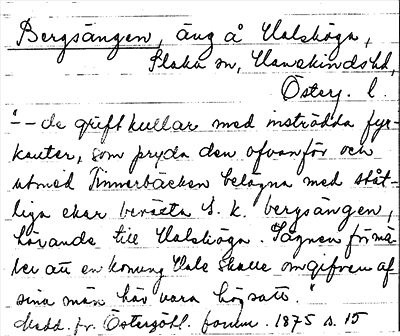 Bergsängen, äng å Valshöga,
Slaka sn, Hanekinds hd,
Österg. l.
"--de griftkullar med inströdda fyr-
kanter, som pryda den ofvanför och
utmed Tinnerbäcken belägna med ståt-
liga ekar beväxta s. k. bergsängen,
hörande till Valshöga. Sägnen förmä-
ler att en konung Vale skulle omgifven af
sina män här vara högsatt."
Medd. fr. Östergötl. fornm. 1875 s. 15